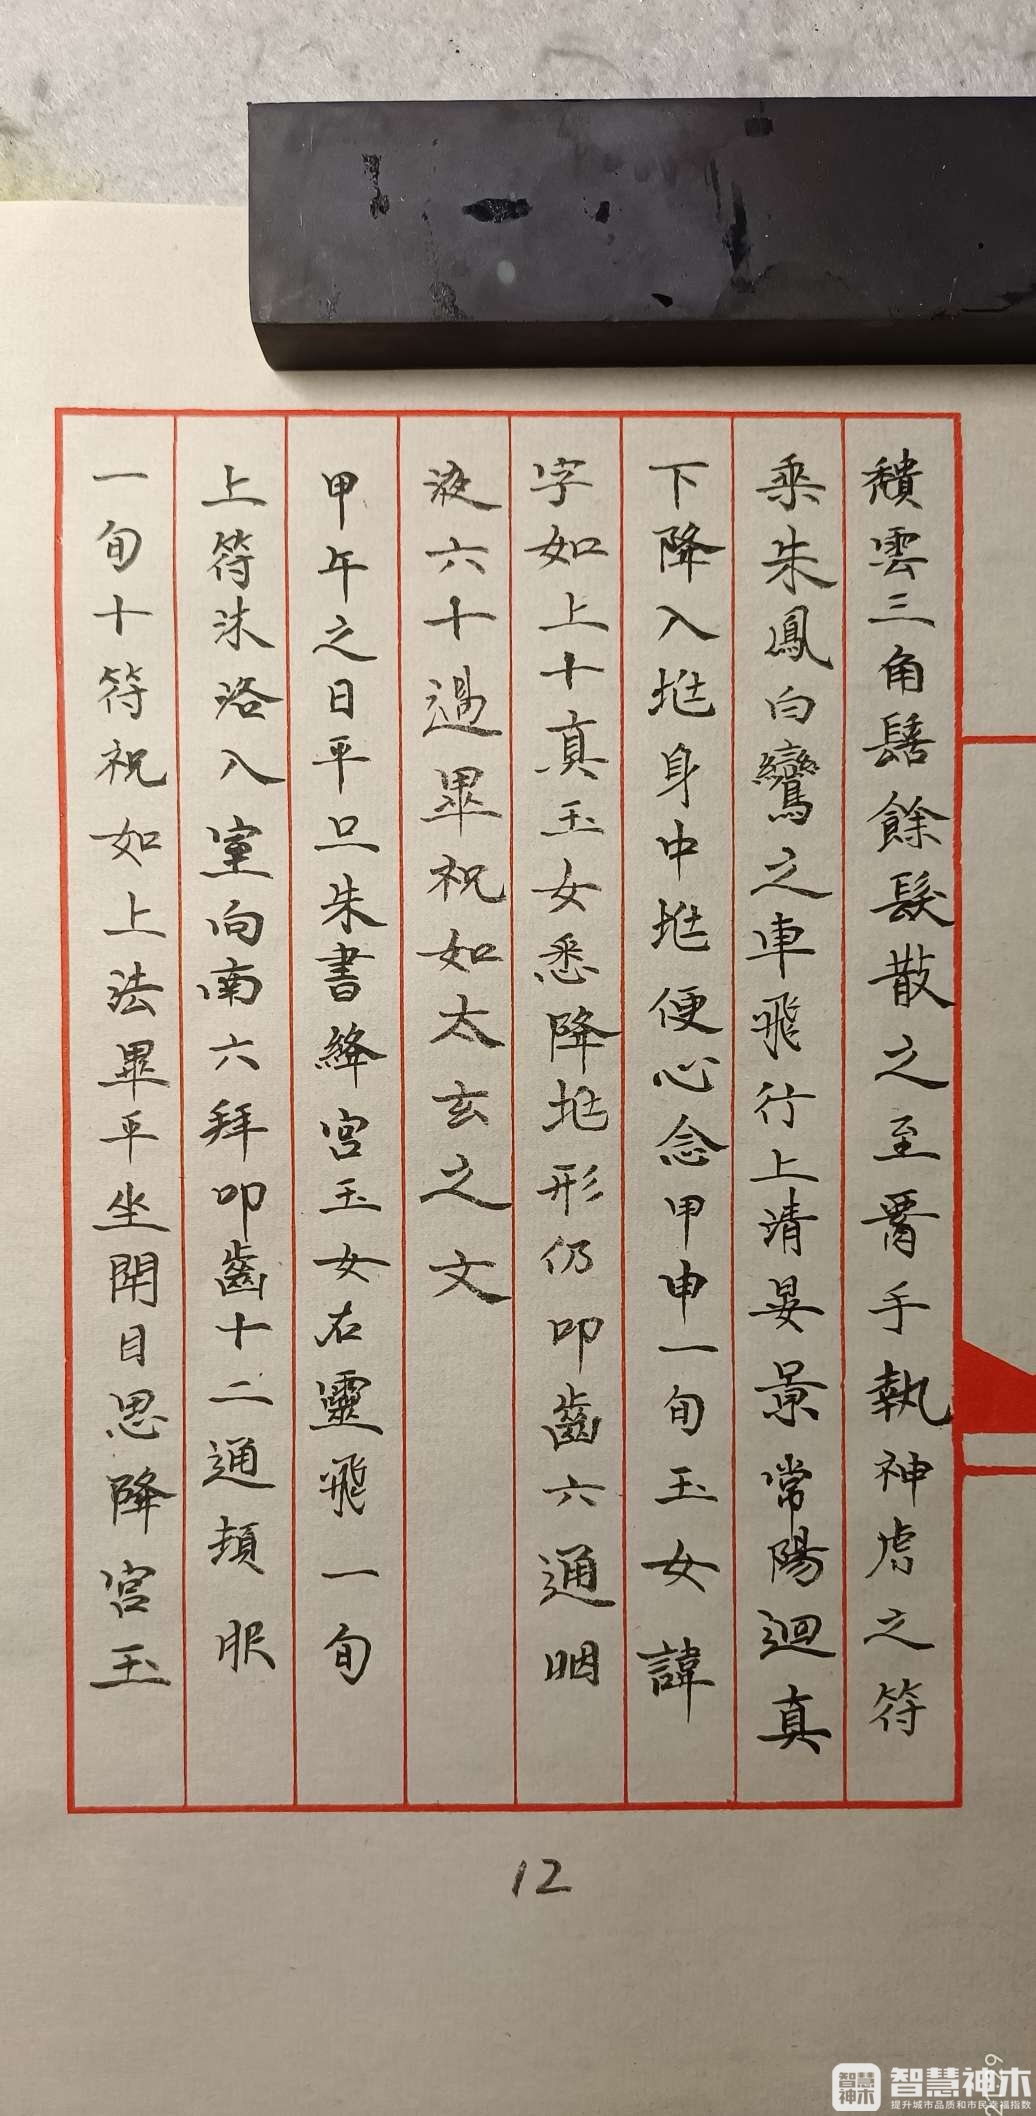 穨雲三角髻餘髮散之至胷手執神虎之符
乘朱鳳白鸞之車飛行上清晏景常陽迴真
下降入兆身中兆便心念甲申一旬玉女諱
字如上十真玉女悉降兆形仍叩齒六通咽
液六十過畢祝如太玄之文
甲午之日平旦朱書絳宮玉女右靈飛一旬
上符沐浴入室向南六拜叩齒十二通頓服
一旬十符祝如上法畢平坐閉目思降宮玉
12
智慧神木
智慧神木
提升城市品质和市民幸福指数